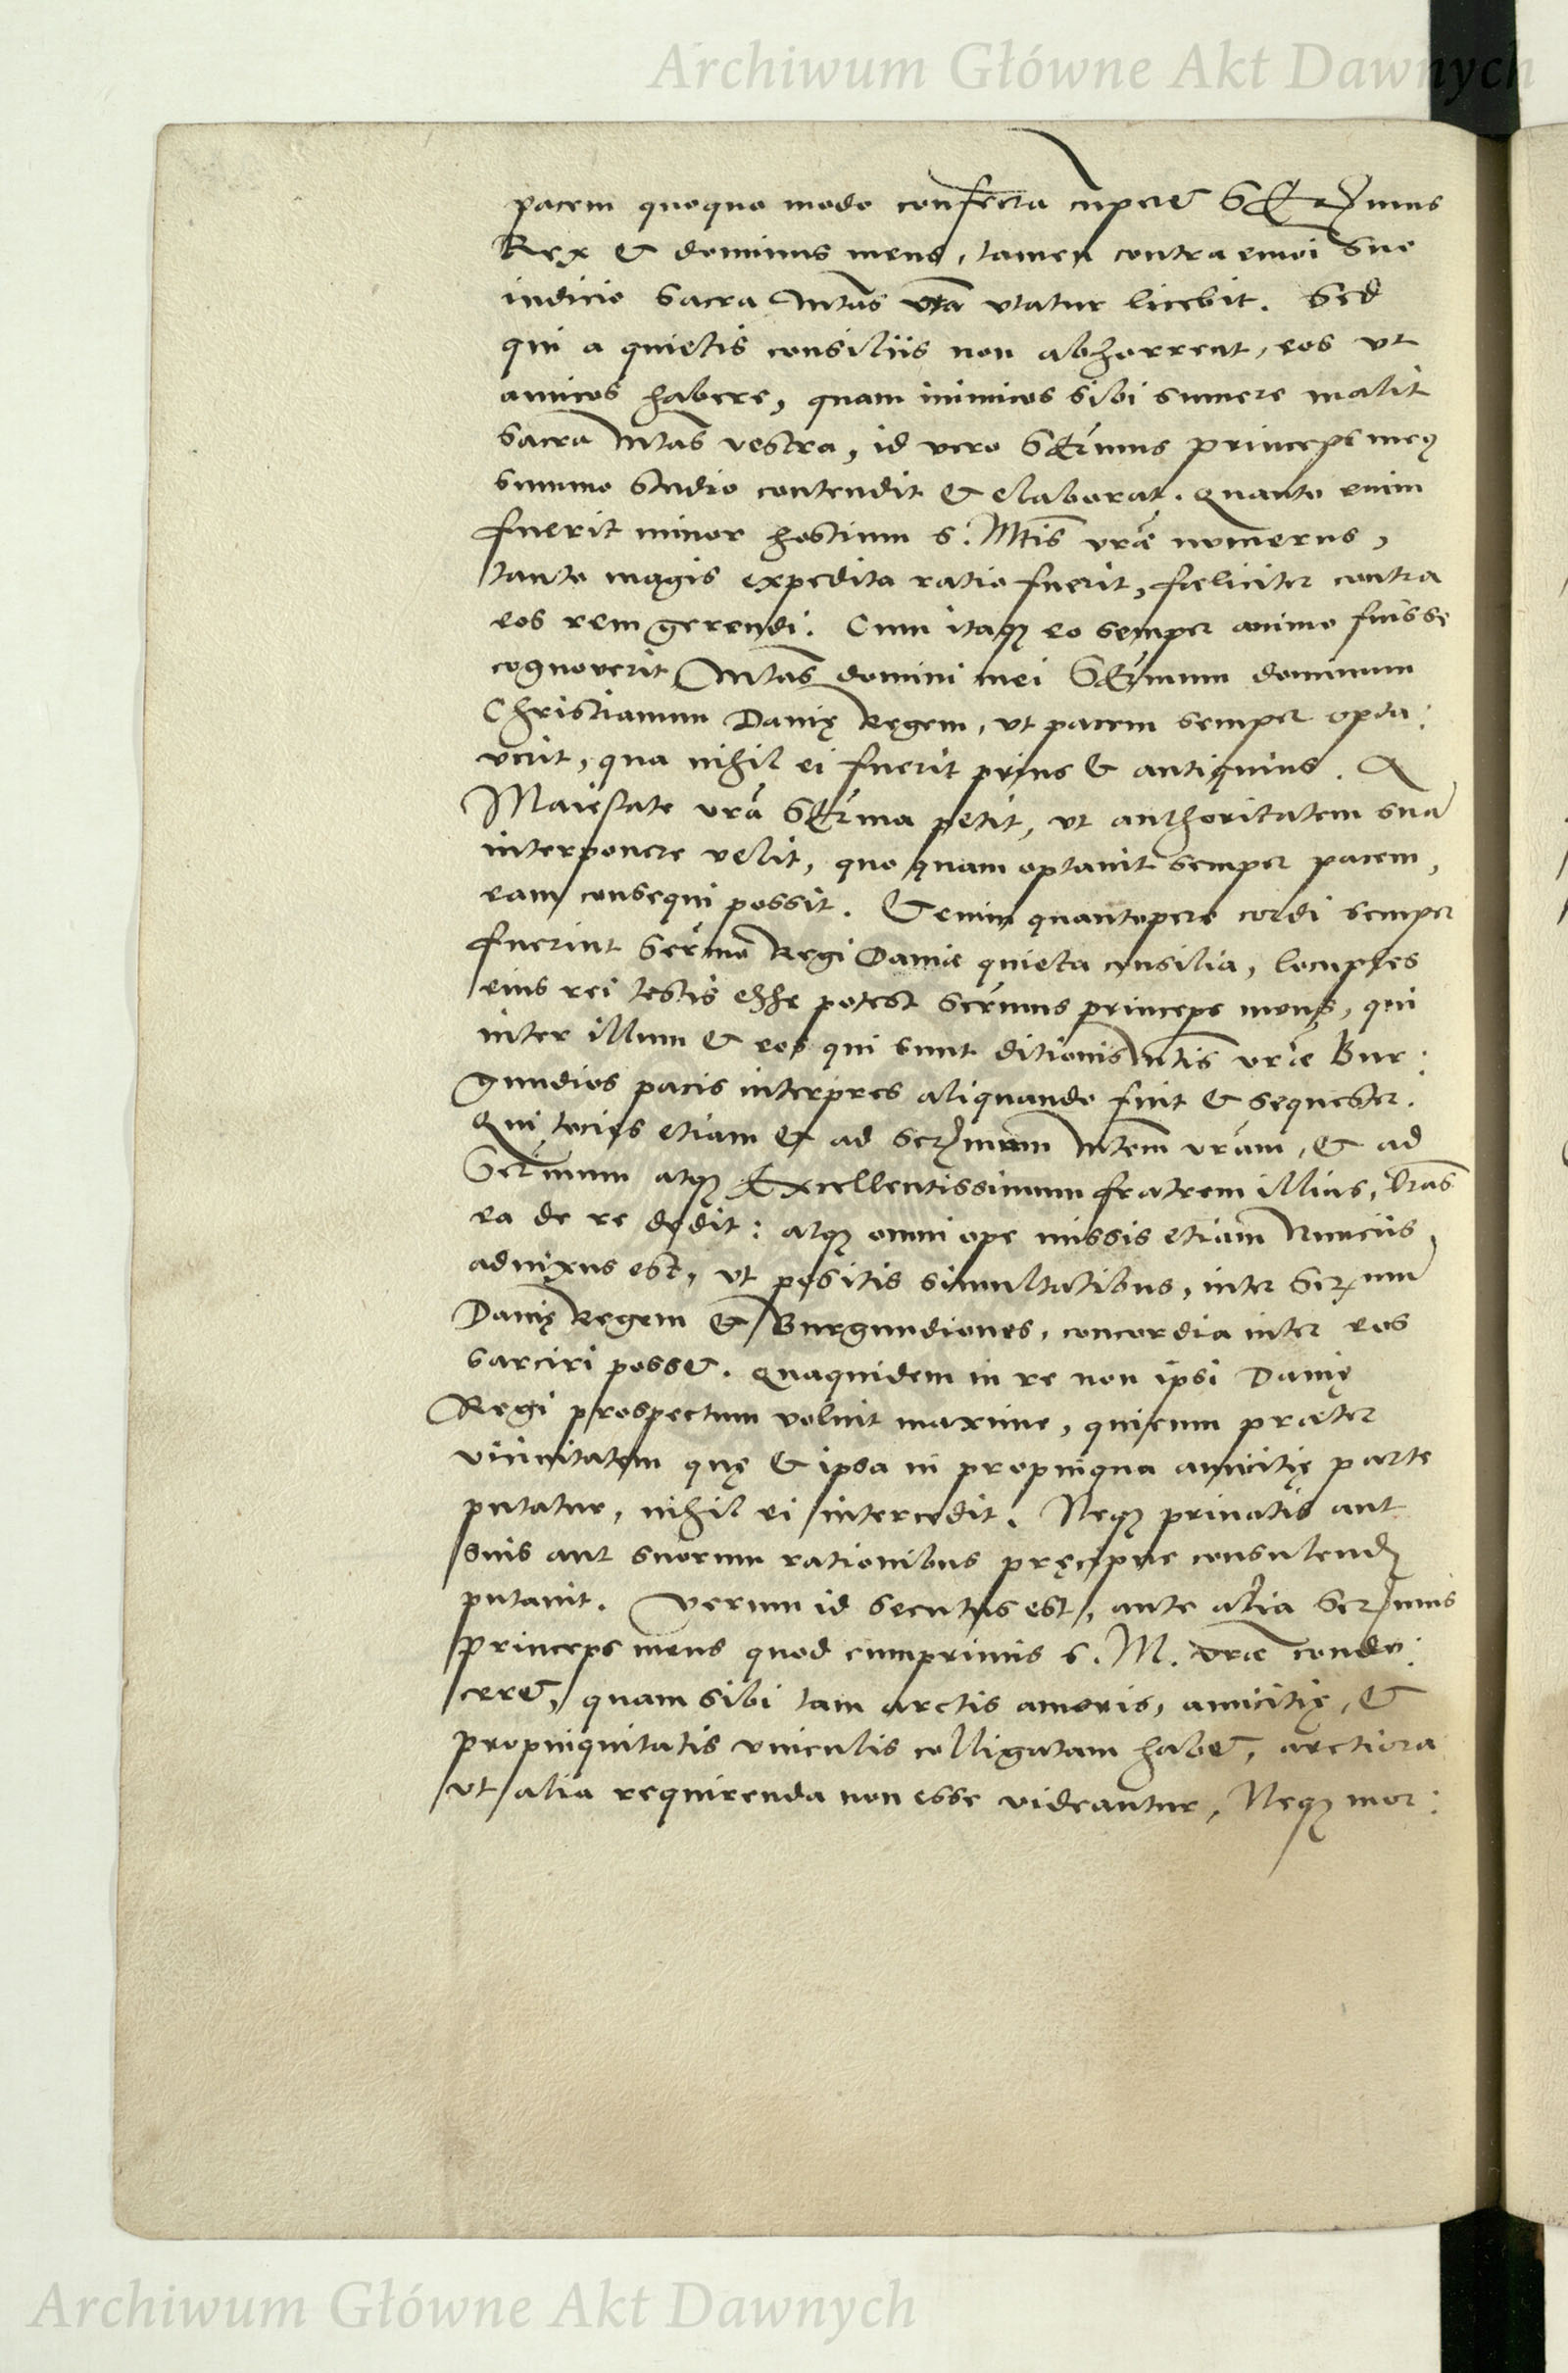 Archiwum Główne Akt Dawnych
pacem quoquo modo confecta cuperet SERmus
Rex et dominus meus, tamen contra suo
iudicio Sacra Mtas vra vtatur licebit. Sed
qui a quietis consiliis non abhorreat, eos vt
amicos habere, quam inimicos sibi sumere malit
Sacra Mtas vestra, id vero SErmus princeps meus
summo studio contendit et elaborat. Quanto enim
fuerit minor hostium S. Mtis vræ numerus,
tanto magis expedita ratio fuerit, fœliciter contra
eos rem gerendi. Cum itaq eo semper animo fuisse
cognoverit Mtas domini mei SErmum dominum
Christianum Danię Regem, vt pacem semper opta:
verit, qua nihil ei fuerit prius et antiquius. A
Maiestate vrã SErma petit, vt authoritatem suã
interponere velit, quo quam optauit semper pacem,
eam consequi possit. Etenim quantopere cordi semper
fuerint Sermo Regi Daniæ quieta consilia, locuples
eius rei testis esse potest Sermus princeps meus, qui
inter illum et eos qui sunt ditionis Mtis vræ Bur:
gundios pacis interpres aliquando fuit et sequester.
Qui tocies etiam et ad Sermam Mtem vram, et ad
Sermum atq Excellentissimum fratrem illius, Lras
ea de re dedit: atq omni ope missis etiam Nunciis,
adnixus est, vt positis simultatibus, inter Sermum
Danię Regem et Burgundiones, concordia inter eos
sarciri posset. Quaquidem in re non ipsi Danię
Regi prospectum voluit maxime, quicum præter
vicinitatem quę et ipsa in propinqua amicitię parte
putatur, nihil ei intercedit. Neq priuatis aut
suis aut suorum rationibus pręcipue consulendũ
putauit. Verum id secutus est, ante alia Sermus
princeps meus quod cumprimis S. M. vræ condu:
ceret, quam sibi tam arctis amoris, amicitię, et
propinquitatis vinculis colligatam habet, arctiora
vt alia requirenda non esse videantur, Neq mor:
Archiwum Główne Akt Dawnych